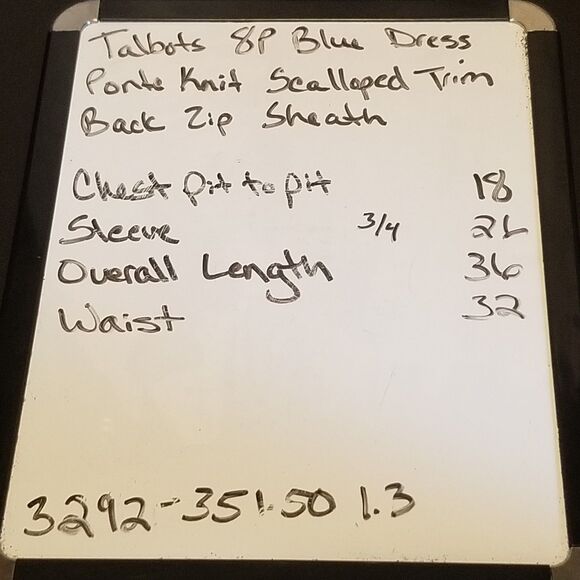 Talbots 8P Blue Dress
Ponte Knit Scalloped Trim
Back Zip Sheath
Chest Pit to pit 18
Sleeve 3/4
Overall Length 36
Waist 32
3292-351.50 1.3